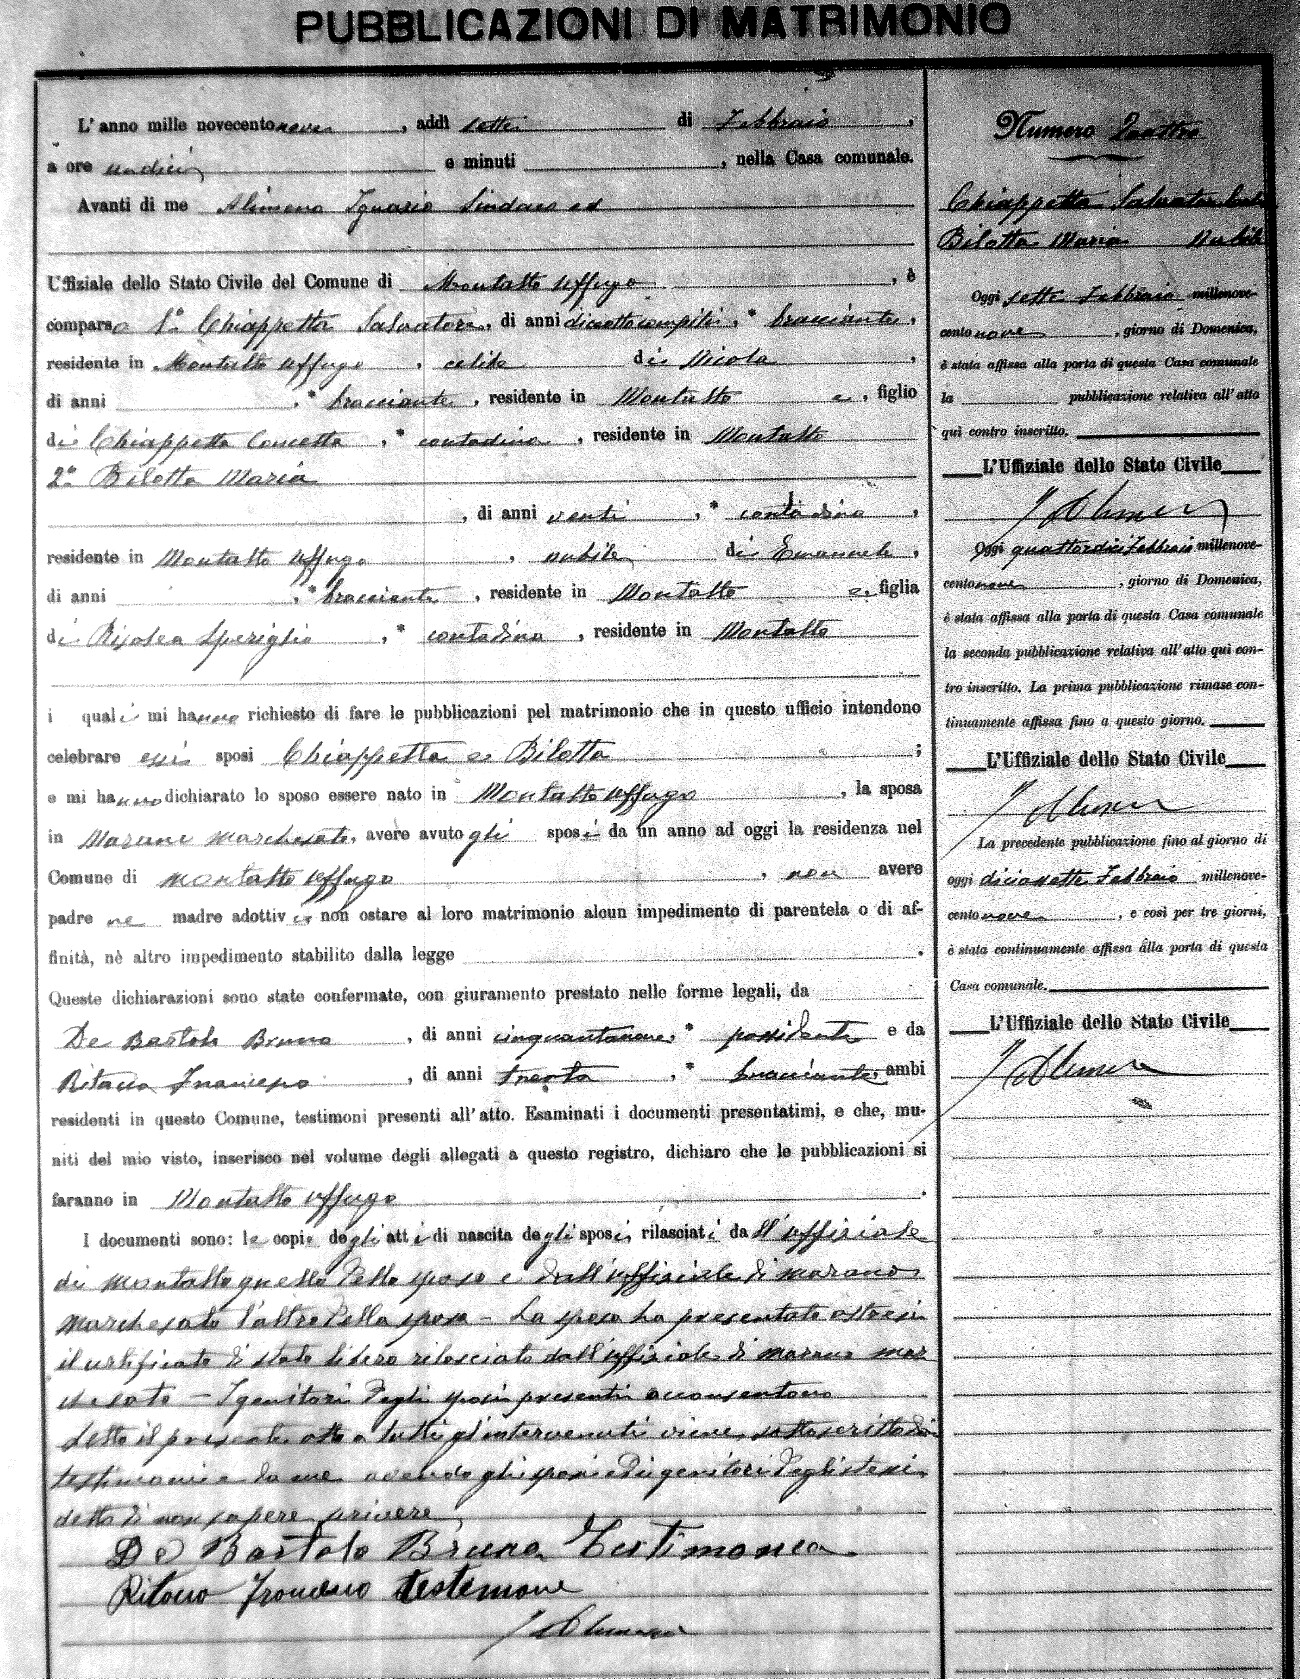 PUBBLICAZIONI DI MATRIMONIO
L'anno mille novecentonove, addì sette di Febbraio,
a ore undici e minuti , nella Casa comunale.
Avanti di me Alimena Ignazio Sindaco ed
Uffiziale dello Stato Civile del Comune di Montalto Uffugo , è
comparso 1° Chiappetta Salvatore, di anni diciotto compiti, * bracciante,
residente in Montalto Uffugo , celibe di Nicola ,
di anni , * bracciante, residente in Montalto e, figlio
di Chiappetta Concetta , * contadina , residente in Montalto
2° Bilotta Maria
, di anni venti , * contadina ,
residente in Montalto Uffugo , nubile di Emanuele ,
di anni , * bracciante , residente in Montalto e, figlia
di , * contadina , residente in Montalto
i quali mi hanno richiesto di fare le pubblicazioni pel matrimonio che in questo ufficio intendono
celebrare essi sposi Chiappetta e Bilotta ;
e mi hanno dichiarato lo sposo essere nato in Montalto Uffugo , la sposa
in Marano Marchesato, avere avuto gli sposi da un anno ad oggi la residenza nel
Comune di Montalto Uffugo , non avere
padre ne madre adottivi e non ostare al loro matrimonio alcun impedimento di parentela o di af-
finità, nè altro impedimento stabilito dalla legge .
Queste dichiarazioni sono state confermate, con giuramento prestato nelle forme legali, da
De Bartolo Bruno , di anni cinquantanove, * possidente e da
Ritacco Francesco , di anni trenta , * bracciante, ambi
residenti in questo Comune, testimoni presenti all'atto. Esaminati i documenti presentatimi, e che, mu-
niti del mio visto, inserisco nel volume degli allegati a questo registro, dichiaro che le pubblicazioni si
faranno in Montalto Uffugo .
I documenti sono: le copie degli atti di nascita degli sposi, rilasciati dall'uffiziale
di Montalto quello dello sposo e dall'uffiziale di Marano
Marchesato l'altro della sposa - La sposa ha presentato altresì
il certificato di stato libero rilasciato dall'uffiziale di Marano Mar
chesato - I genitori degli sposi presenti acconsentono
Letto il presente atto a tutti gl'intervenuti viene sottoscritto dai
testimoni e da me avendo gli sposi ed i genitori degli stessi
detto di non sapere scrivere
De Bartolo Bruno Testimonea
Ritacco Francesco testimone
I Alimena
Numero Quattro
Chiappetta Salvatore
Bilotta Maria Nubile
Oggi sette Febbraio millenove-
cento nove , giorno di Domenica,
è stata affissa alla porta di questa Casa comunale
la pubblicazione relativa all'atto
qui contro inscritto.
L'Uffiziale dello Stato Civile
I Alimena
Oggi quattordici Febbraio millenove-
cento nove , giorno di Domenica,
è stata affissa alla porta di questa Casa comunale
la seconda pubblicazione relativa all'atto qui con-
tro inscritto. La prima pubblicazione rimase con-
tinuamente affissa fino a questo giorno.
L'Uffiziale dello Stato Civile
I Alimena
La precedente pubblicazione fino al giorno di
oggi diciassette Febbraio millenove-
cento nove , e così per tre giorni,
è stata continuamente affissa alla porta di questa
Casa comunale.
L'Uffiziale dello Stato Civile
I Alimena